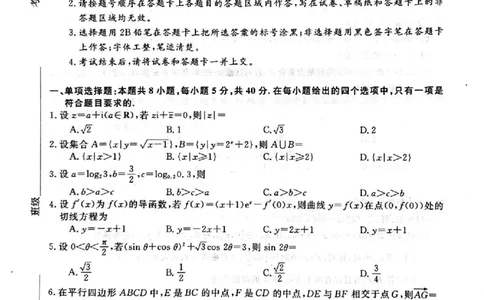 考
2.请按题号顺序在答题卡上各题目的答题区域内作答,写在试卷、草稿纸和答题卡上的非
答题区域均无效。
3.选择题用2B铅笔在答题卡上把所选答案的标号涂黑;非选择题用黑色签字笔在答题卡
上作答;字体工整,笔迹清楚。
4.考试结束后,请将试卷和答题卡一并上交。
一、单项选择题:本题共8小题,每小题5分,共40分.在每小题给出的四个选项中,只有一项是
符合题目要求的.
1.设z=a+i(a∈R),若zi+z̅=0,则|z|=
A.√2 B.1 C.√3 D.2
2.设集合A={x|y=√(x-1)},B={y|y=2ˣ+2},则A∪B=
A.{x|x>1} B.{x|x≥1} C.{x|x≥2} D.{x|x>2}
3.设a=log₂3,b=3/2,c=log₀.₂0.3,则
A.b>a>c B.b>c>a C.a>b>c D.a>c>b
4.设f′(x)为f(x)的导函数,若f(x)=(x+1)eˣ-f′(0)x,则曲线y=f(x)在点(0,f(0))处的
切线方程为
A.y=-x+1 B.y=-2x+1 C.y=2x+1 D.y=x+1
班级
5.设0<θ<π/2,若(sin θ+cos θ)²+√3cos 2θ=3,则sin 2θ=
A.√3/2 B.1/2 C.√2/2 D.3/4
6.在平行四边形ABCD中,E是BC的中点,F是CD的中点,DE与BF相交于点G,则AG=